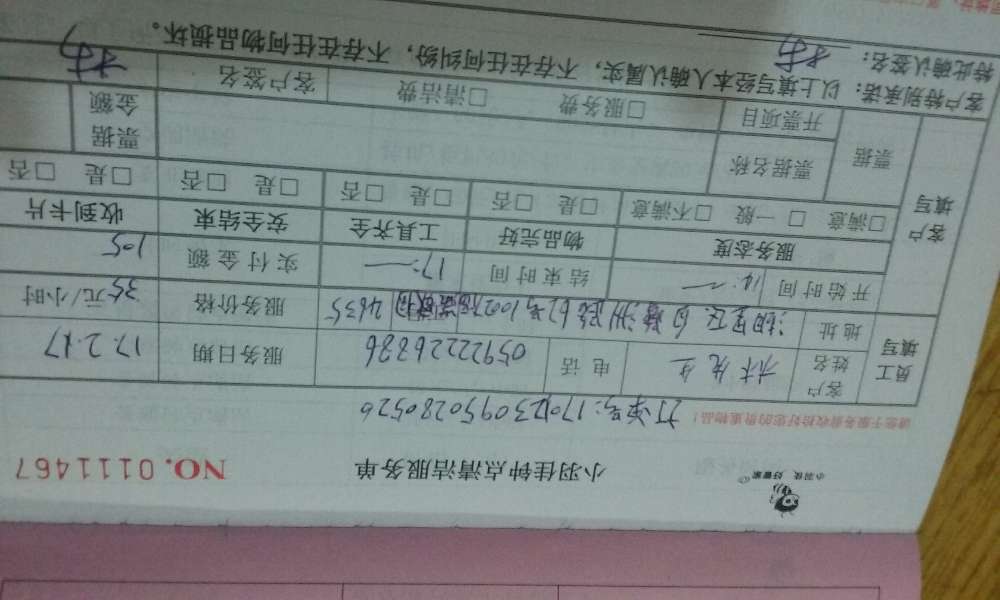 小羽佳 好管家
小羽佳钟点清洁服务单 NO. 0111467
请您于服务前收拾好您的贵重物品！
打单号:1701230950280526
员工填写 客户姓名 林先生 电话 05922226286 服务日期 17.2.17
地址 湖里区 62号1002 4635 服务价格 35元/小时
开始时间 14:— 结束时间 17:— 实付金额 105
客户填写 服务态度 物品完好 工具齐全 安全结束 收到卡片
□满意 □一般 □不满意 □是 □否 □是 □否 □是 □否 □是 □否
票据 票据名称 票据金额
开票项目 □服务费 □清洁费 客户签名 林
客户特别承诺：以上填写经本人确认属实，不存在任何纠纷，不存在任何物品损坏。
特此确认签名：林